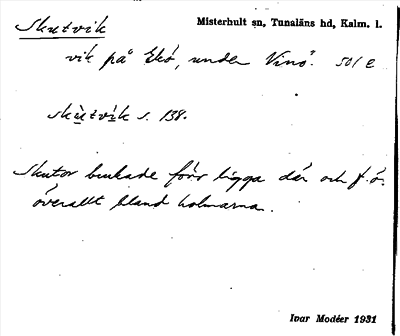 Skutvik
Misterhult sn, Tunaläns hd, Kalm. l.
vik på Ekö, under Vinö. 501 e
skùtvìk s. 138.
Skutor brukade förr ligga där och f. ö.
överallt bland holmarna.
Ivar Modéer 1931